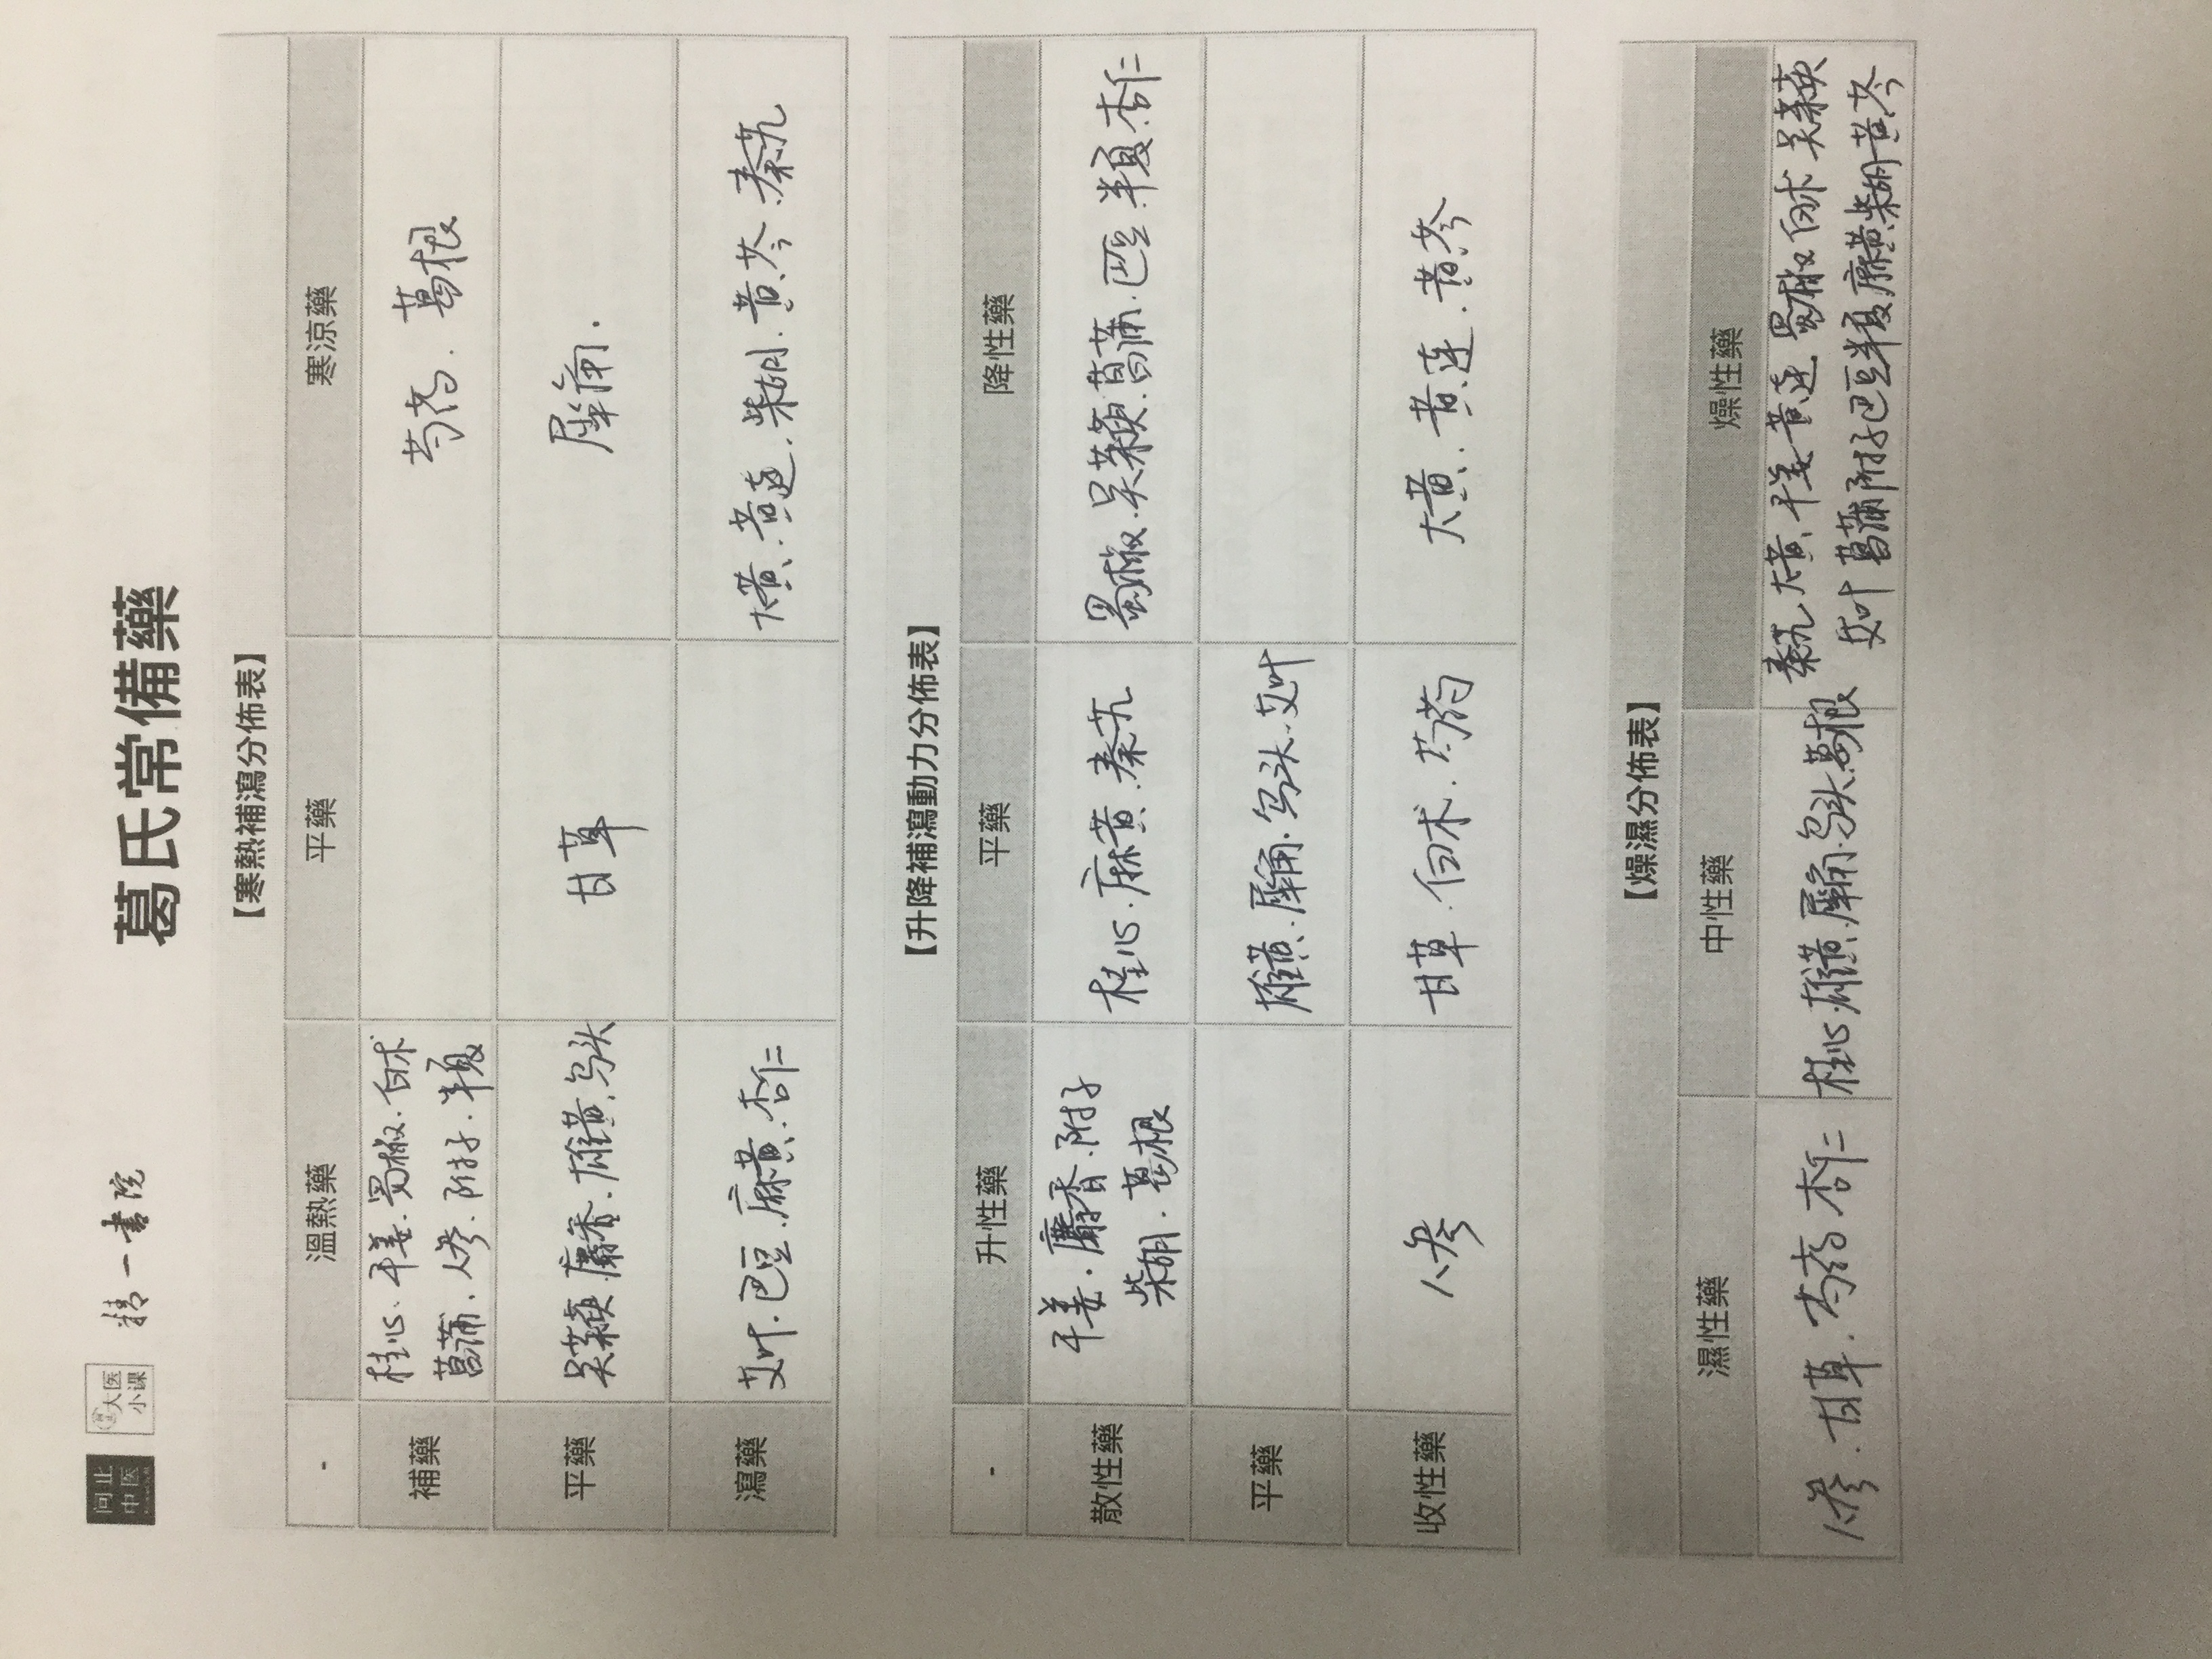 问止
中医
大医
小课
精一书院
葛氏常備藥
【寒熱補瀉分佈表】
- 溫熱藥 平藥 寒涼藥
補藥 桂心.干姜.蜀椒.白术 芍药.葛根
菖蒲.人参.附子.半夏
平藥 吴茱萸.麝香.雄黄.乌头 甘草 犀角.
瀉藥 艾叶.巴豆.麻黄.杏仁 大黄.黄连.柴胡.黄芩.秦艽
【升降補瀉動力分佈表】
- 升性藥 平藥 降性藥
散性藥 干姜.麝香.附子 桂心.麻黄.秦艽 蜀椒.吴茱萸.菖蒲.巴豆.半夏.杏仁
柴胡.葛根
平藥 雄黄.犀角.乌头.艾叶
收性藥 人参 甘草.白术.芍药 大黄.黄连.黄芩
【燥濕分佈表】
濕性藥 中性藥 燥性藥
人参.甘草.芍药.杏仁 桂心.雄黄.犀角.乌头.葛根 秦艽 大黄 干姜 黄连 蜀椒 白术 吴茱萸
艾叶 菖蒲 附子 巴豆 半夏 麻黄 柴胡 黄芩